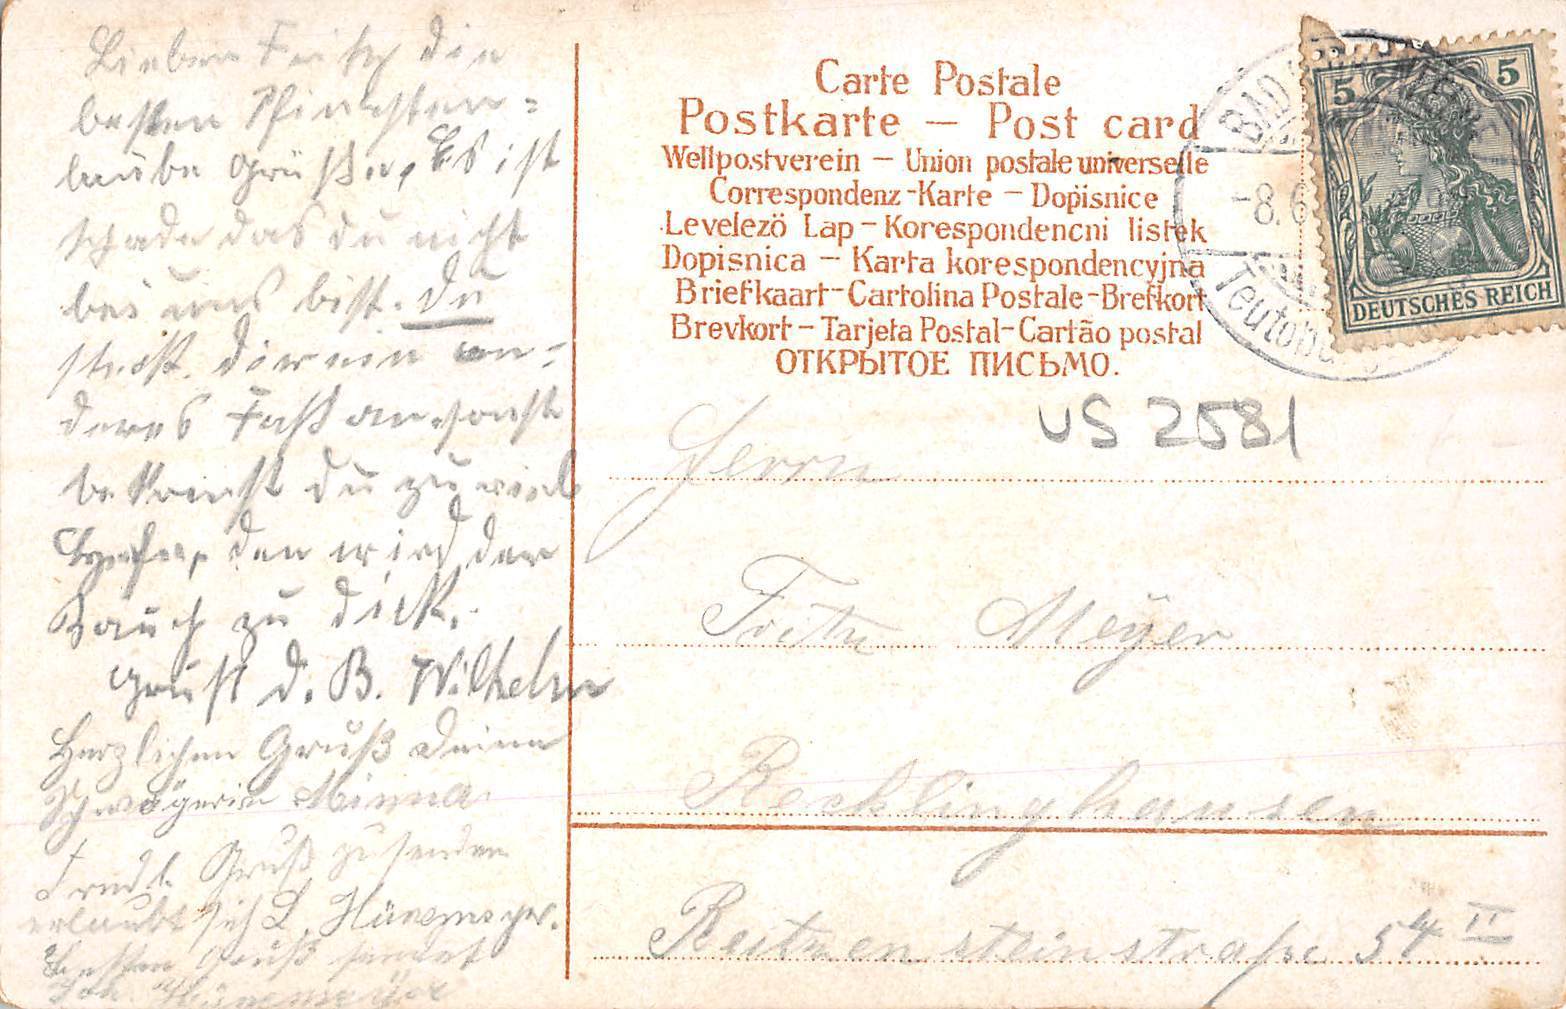 Lieber Fritz die
besten Pfingsten=
laube Grüße, Es ist
schade das du nicht
bei uns bist. du
stichst dir ein an=
deres Faß an sonst
bekomst du zu viel
Hefe, den wird der
Bauch zu dick.
Gruß d. B. Wilhelm
Herzlichen Gruß deine
Schwägerin Minna
Frndl. Gruß zu senden
erlaubt sich L. Hünemeyer.
Besten Gruß sendet
Joh. Hünemeyer
Carte Postale
Postkarte — Post card
Weltpostverein — Union postale universelle
Correspondenz-Karte — Dopisnice
Levelezö Lap — Korespondencni listek
Dopisnica — Karta korespondencyjna
Briefkaart-Cartolina Postale-Brefkort
Brevkort — Tarjeta Postal-Cartão postal
ОТКРЫТОЕ ПИСЬМО.
5 5
DEUTSCHES REICH
BAD
-8.6
Teutobu
US 2581
Herrn
Fritz Meÿer
Recklinghausen
Reitzensteinstraße 54 II